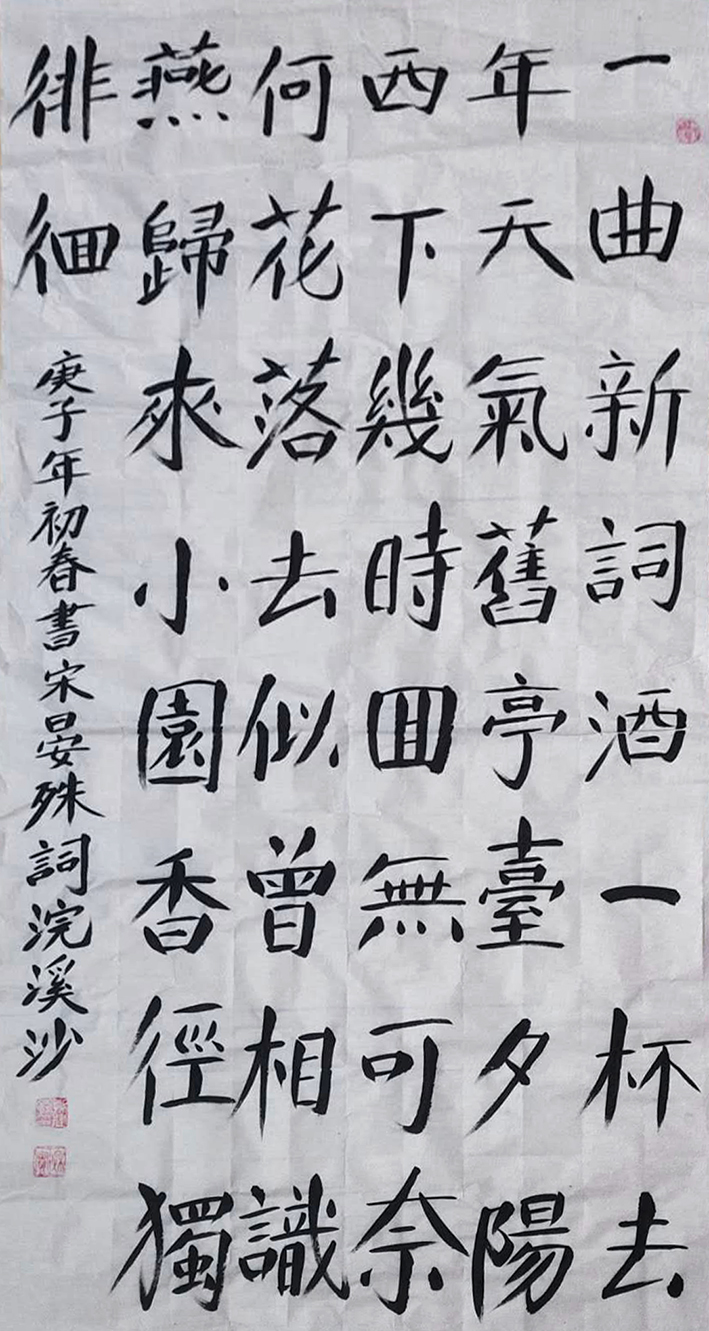 一曲新詞酒一杯去
年天氣舊亭臺夕陽
西下幾時回無可奈
何花落去似曾相識
燕歸來小園香徑獨
徘徊
庚子年初春書宋晏殊詞浣溪沙